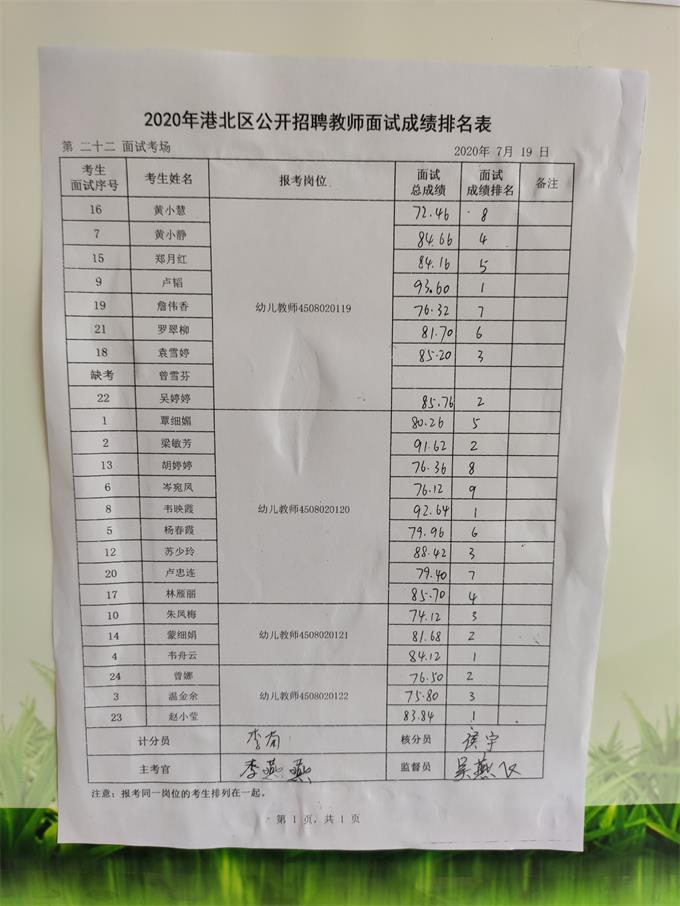 2020年港北区公开招聘教师面试成绩排名表
第 二十二 面试考场 2020年 7月 19 日
考生面试序号 考生姓名 报考岗位 面试总成绩 面试成绩排名 备注
16 黄小慧 72.46 8
7 黄小静 84.66 4
15 郑月红 84.16 5
9 卢韬 93.60 1
19 詹伟香 幼儿教师4508020119 76.32 7
21 罗翠柳 81.70 6
18 袁雪婷 85.20 3
缺考 曾雪芬
22 吴婷婷 85.76 2
1 覃细媚 80.26 5
2 梁敏芳 91.62 2
13 胡婷婷 76.36 8
6 岑宛凤 76.12 9
8 韦映霞 幼儿教师4508020120 92.64 1
5 杨春霞 79.96 6
12 苏少玲 88.42 3
20 卢忠连 79.40 7
17 林雁丽 85.70 4
10 朱凤梅 74.12 3
14 蒙细娟 幼儿教师4508020121 81.68 2
4 韦舟云 84.12 1
24 曾娜 76.50 2
3 温金余 幼儿教师4508020122 75.80 3
23 赵小莹 83.84 1
计分员 李南 核分员
主考官 李燕燕 监督员 吴燕
注意：报考同一岗位的考生排列在一起。
第 1 页，共 1 页